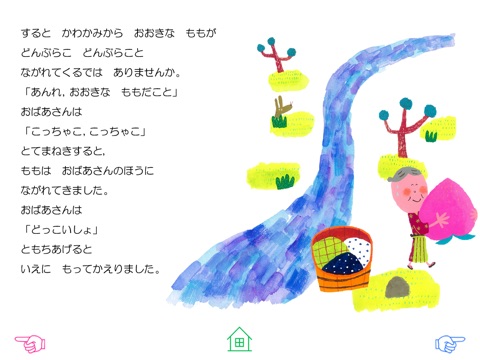 すると　かわかみから　おおきな　ももが
どんぶらこ　どんぶらこと
ながれてくるでは　ありませんか。
「あんれ，おおきな　ももだこと」
おばあさんは
「こっちゃこ，こっちゃこ」
とてまねきすると，
ももは　おばあさんのほうに
ながれてきました。
おばあさんは
「どっこいしょ」
ともちあげると
いえに　もってかえりました。